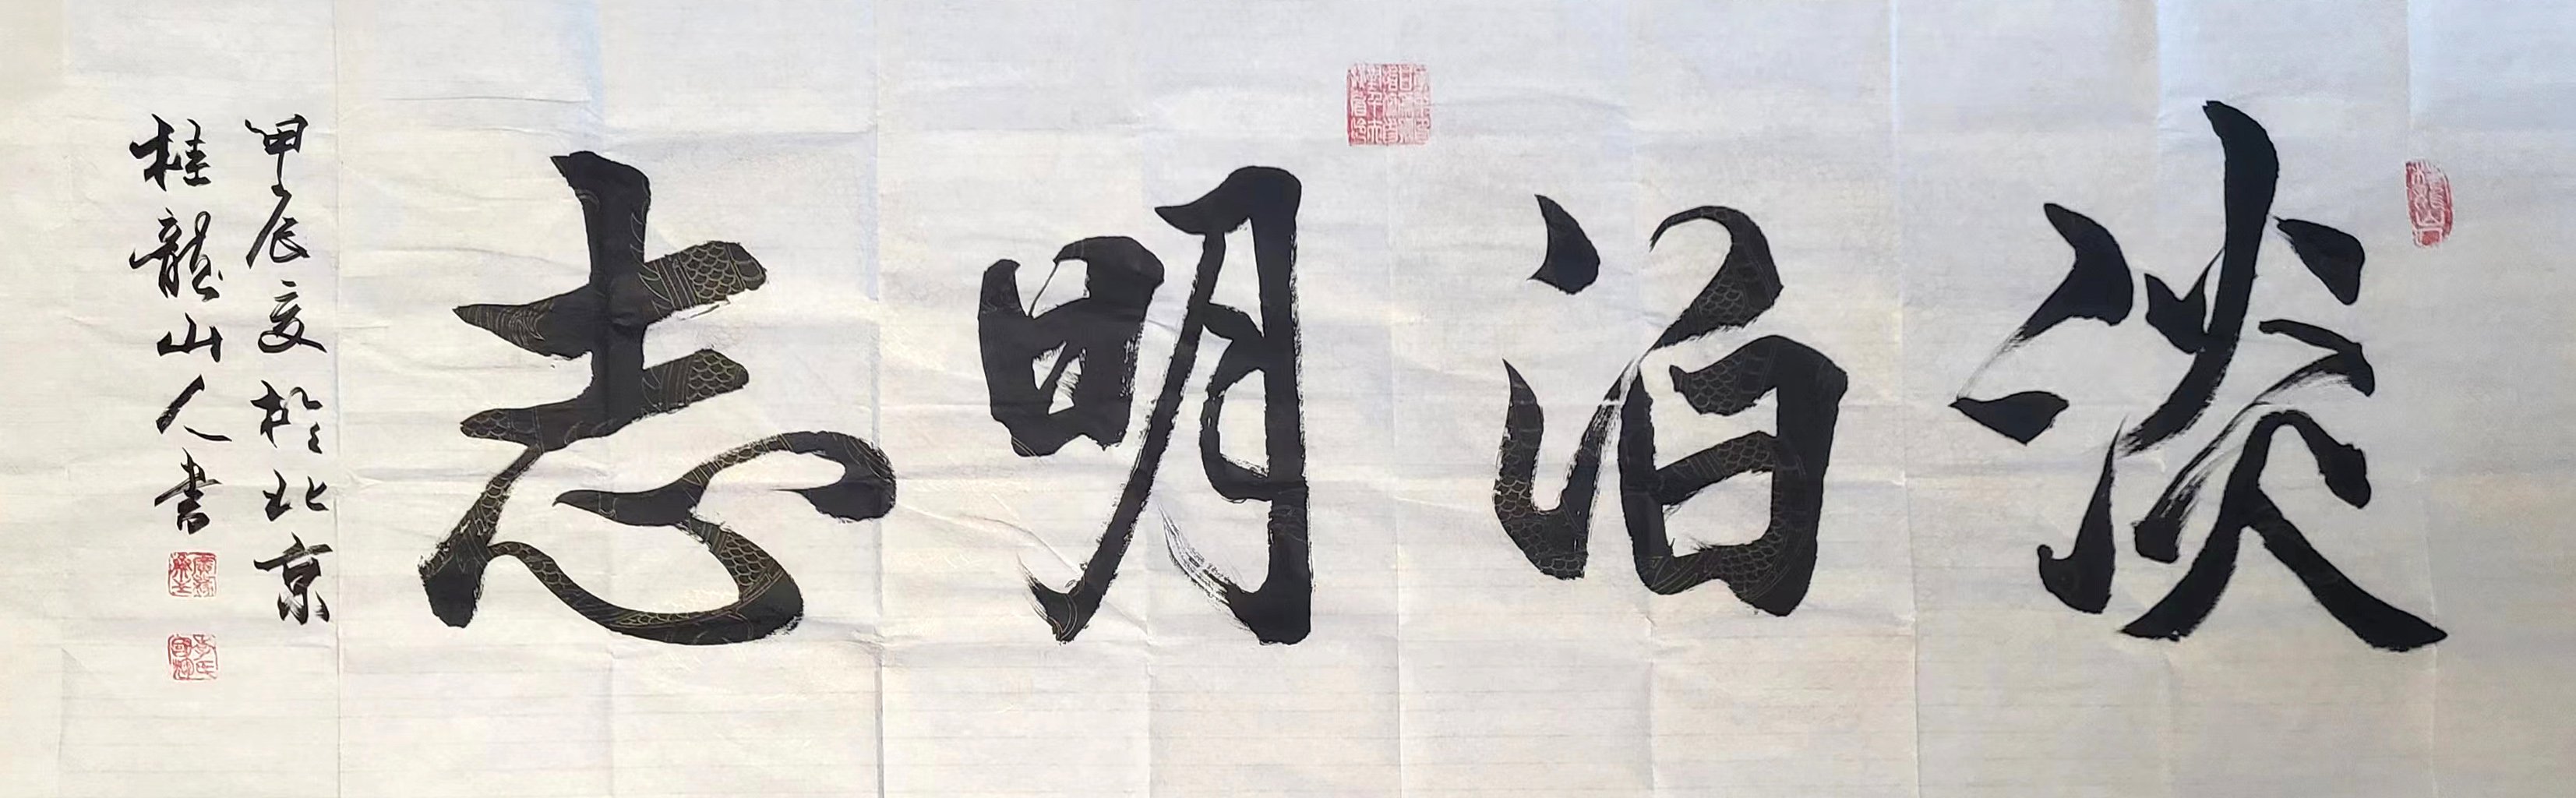 淡泊明志
甲辰夏於北京
桂龍山人書